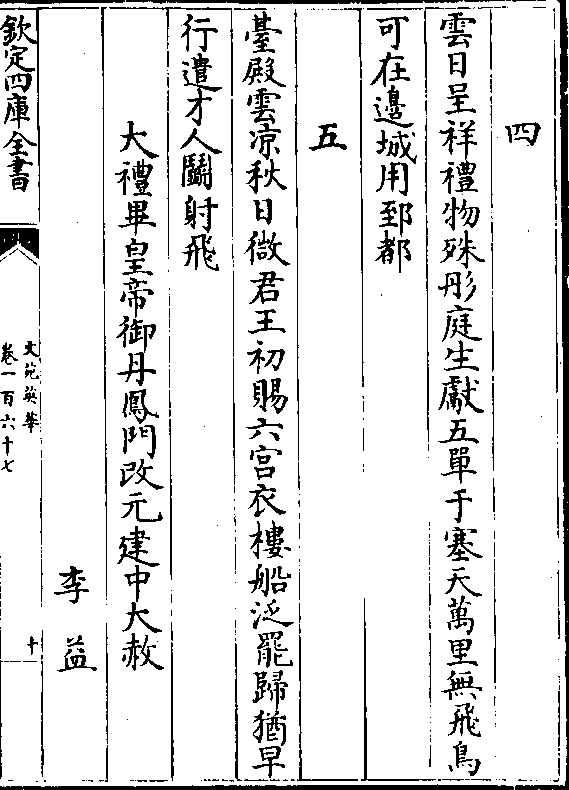 四
雲日呈祥禮物殊彤庭生獻五單于塞天萬里無飛鳥
可在邊城用郅都
五
臺殿雲凉秋日微君王初賜六宫衣樓船泛罷歸猶早
行遣才人鬬射飛
大禮畢皇帝御丹鳳門改元建中大赦
李益
欽定四庫全書
文苑英華
卷一百六十七
十